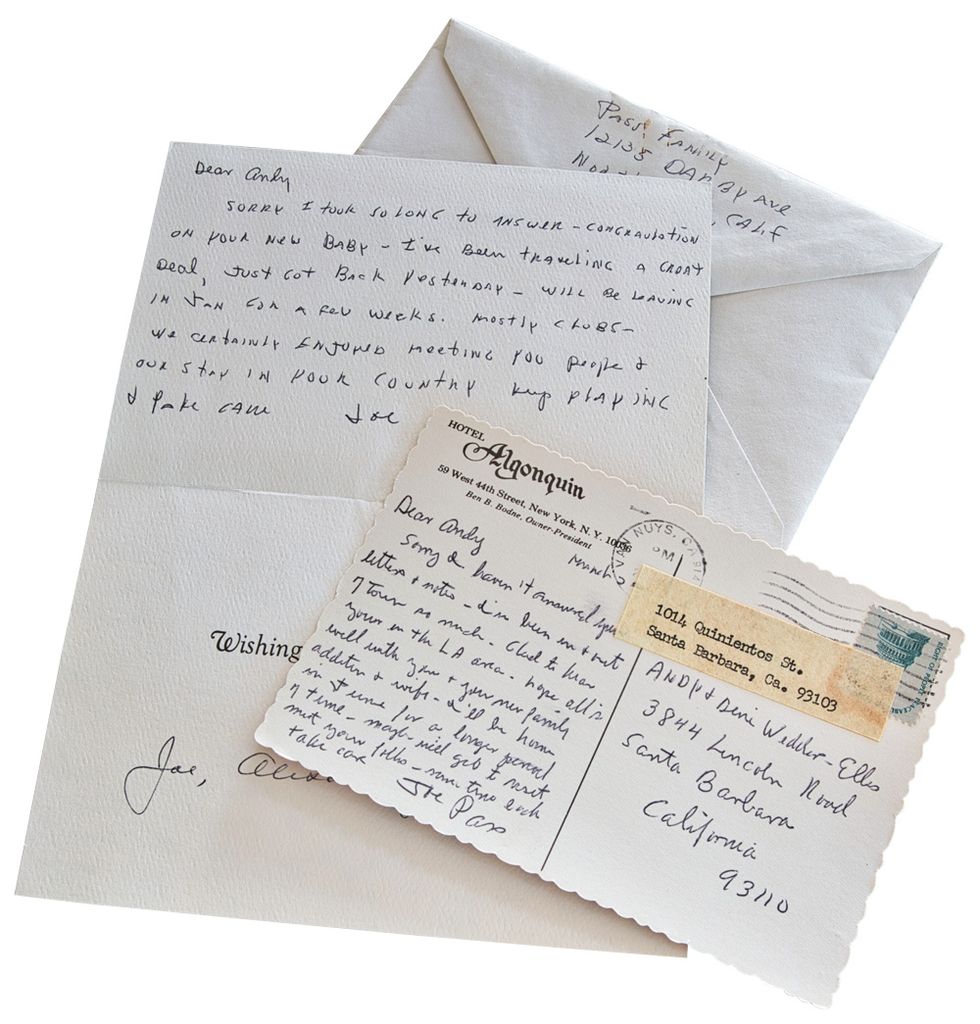 Pass Family
12135 DARBY Ave
CALIF
Dear Andy
SORRY I took SO LONG to ANSWER - CONGRAULATION
ON YOUR NEW BABY - I've Been traveling A GREAT
Deal, Just GOt BAck Yesterday - WILL Be LEAVING
IN JAN FOR A Few weeks. MOStly CLUBS -
We certainly ENJOYED Meeting YOU people &
OUR StAY IN YOUR COUNTRY Keep PLAYING
& take care Joe
Wishing
Joe,
HOTEL
Algonquin
59 West 44th Street, New York, N. Y. 10036
Ben B. Bodne, Owner-President
March 2
Dear Andy
Sorry I haven't answered your
letters & notes - I've been in & out
of Town so much. Glad to hear
you're in the LA area - hope all's
well with you & your new family
addition & wife - I'll be home
in June for a longer period
of time - maybe we'll get to meet
meet your folks - some time each
take care
Joe Pass
VAN NUYS, CA 914
PM
1014 Quinientos St.
Santa Barbara, Ca. 93103
ANDY & Deni Weddler-Ellis
3844 Lincoln Road
Santa Barbara
California
93110